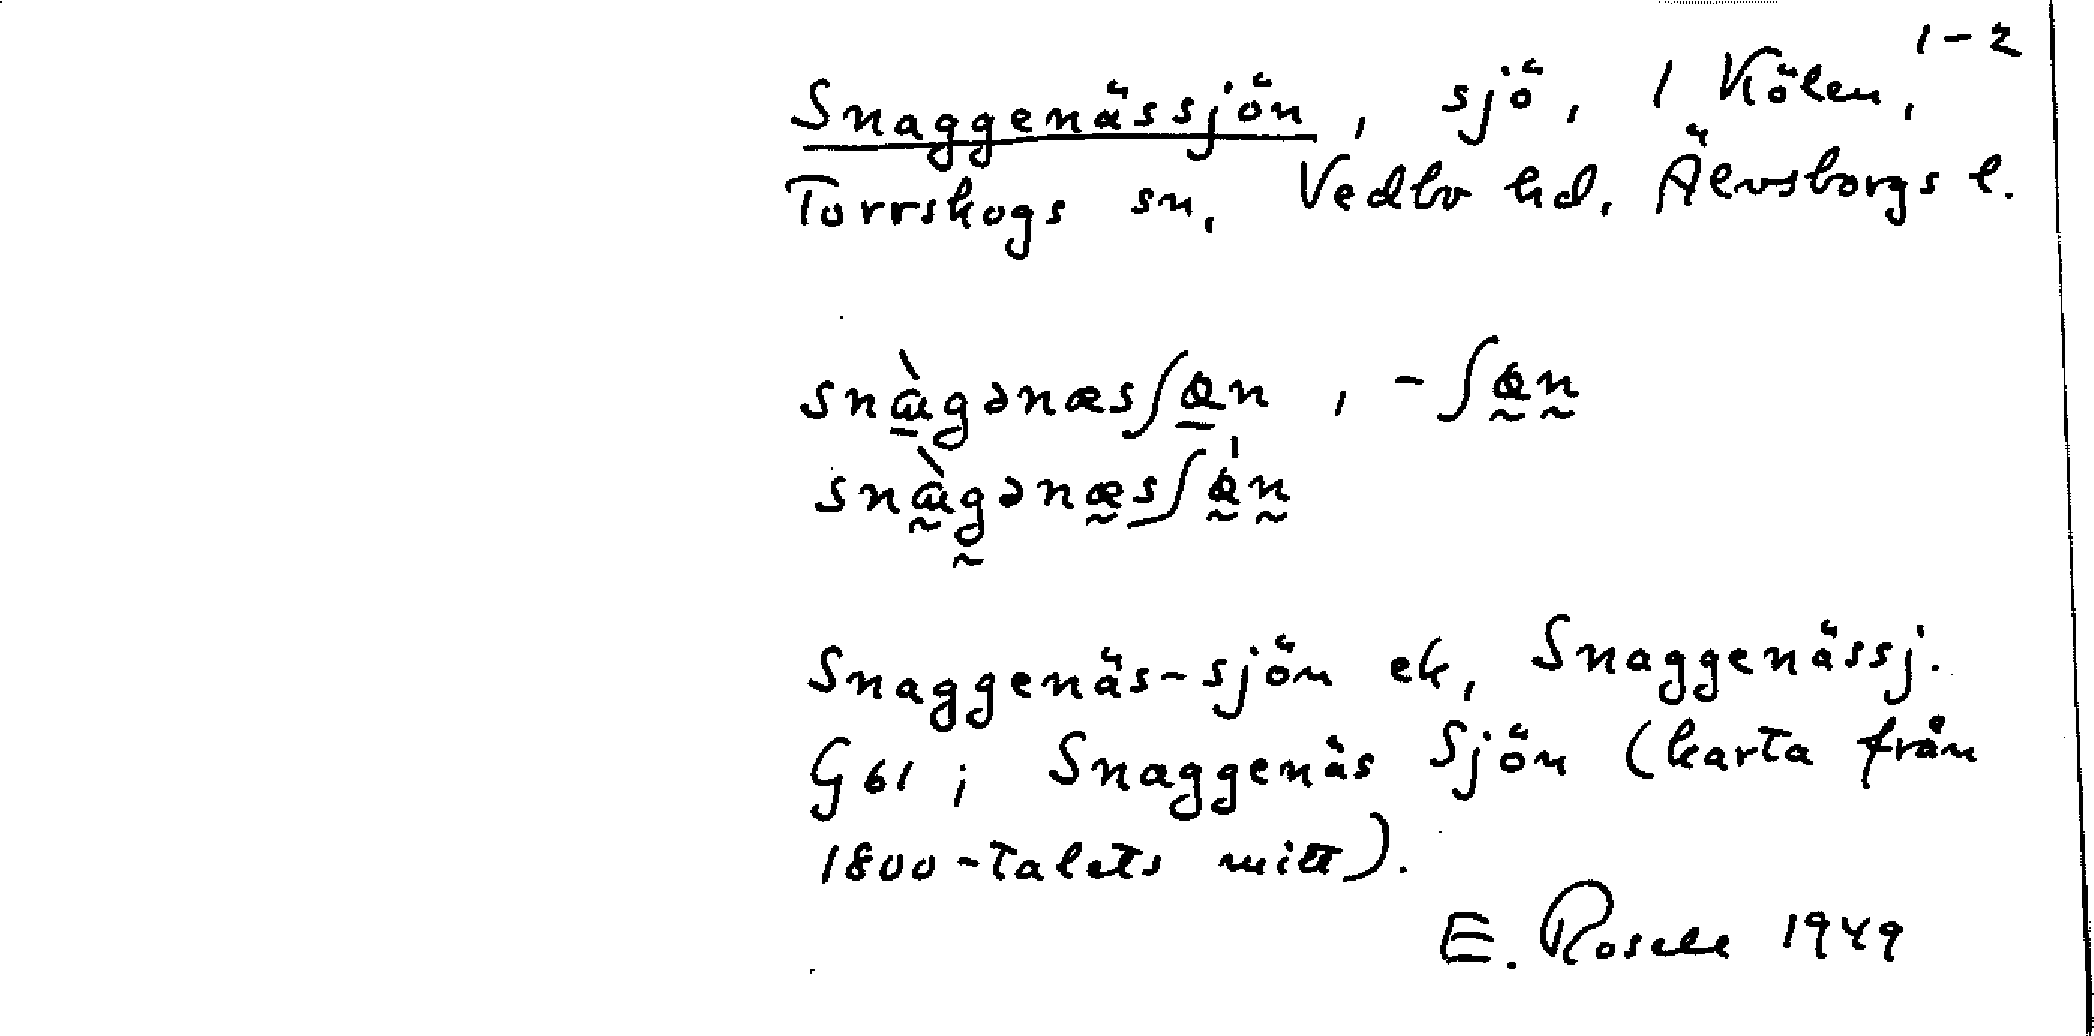 Snaggenässjön, sjö, 1 Kölen, 1-2
Torrskogs sn, Vedbo hd, Älvsborgs l.
Snaggenäs-sjön ek, Snaggenässj.
G61; Snaggenäs Sjön (karta från
1800-talets mitt).
E. Rosell 1949